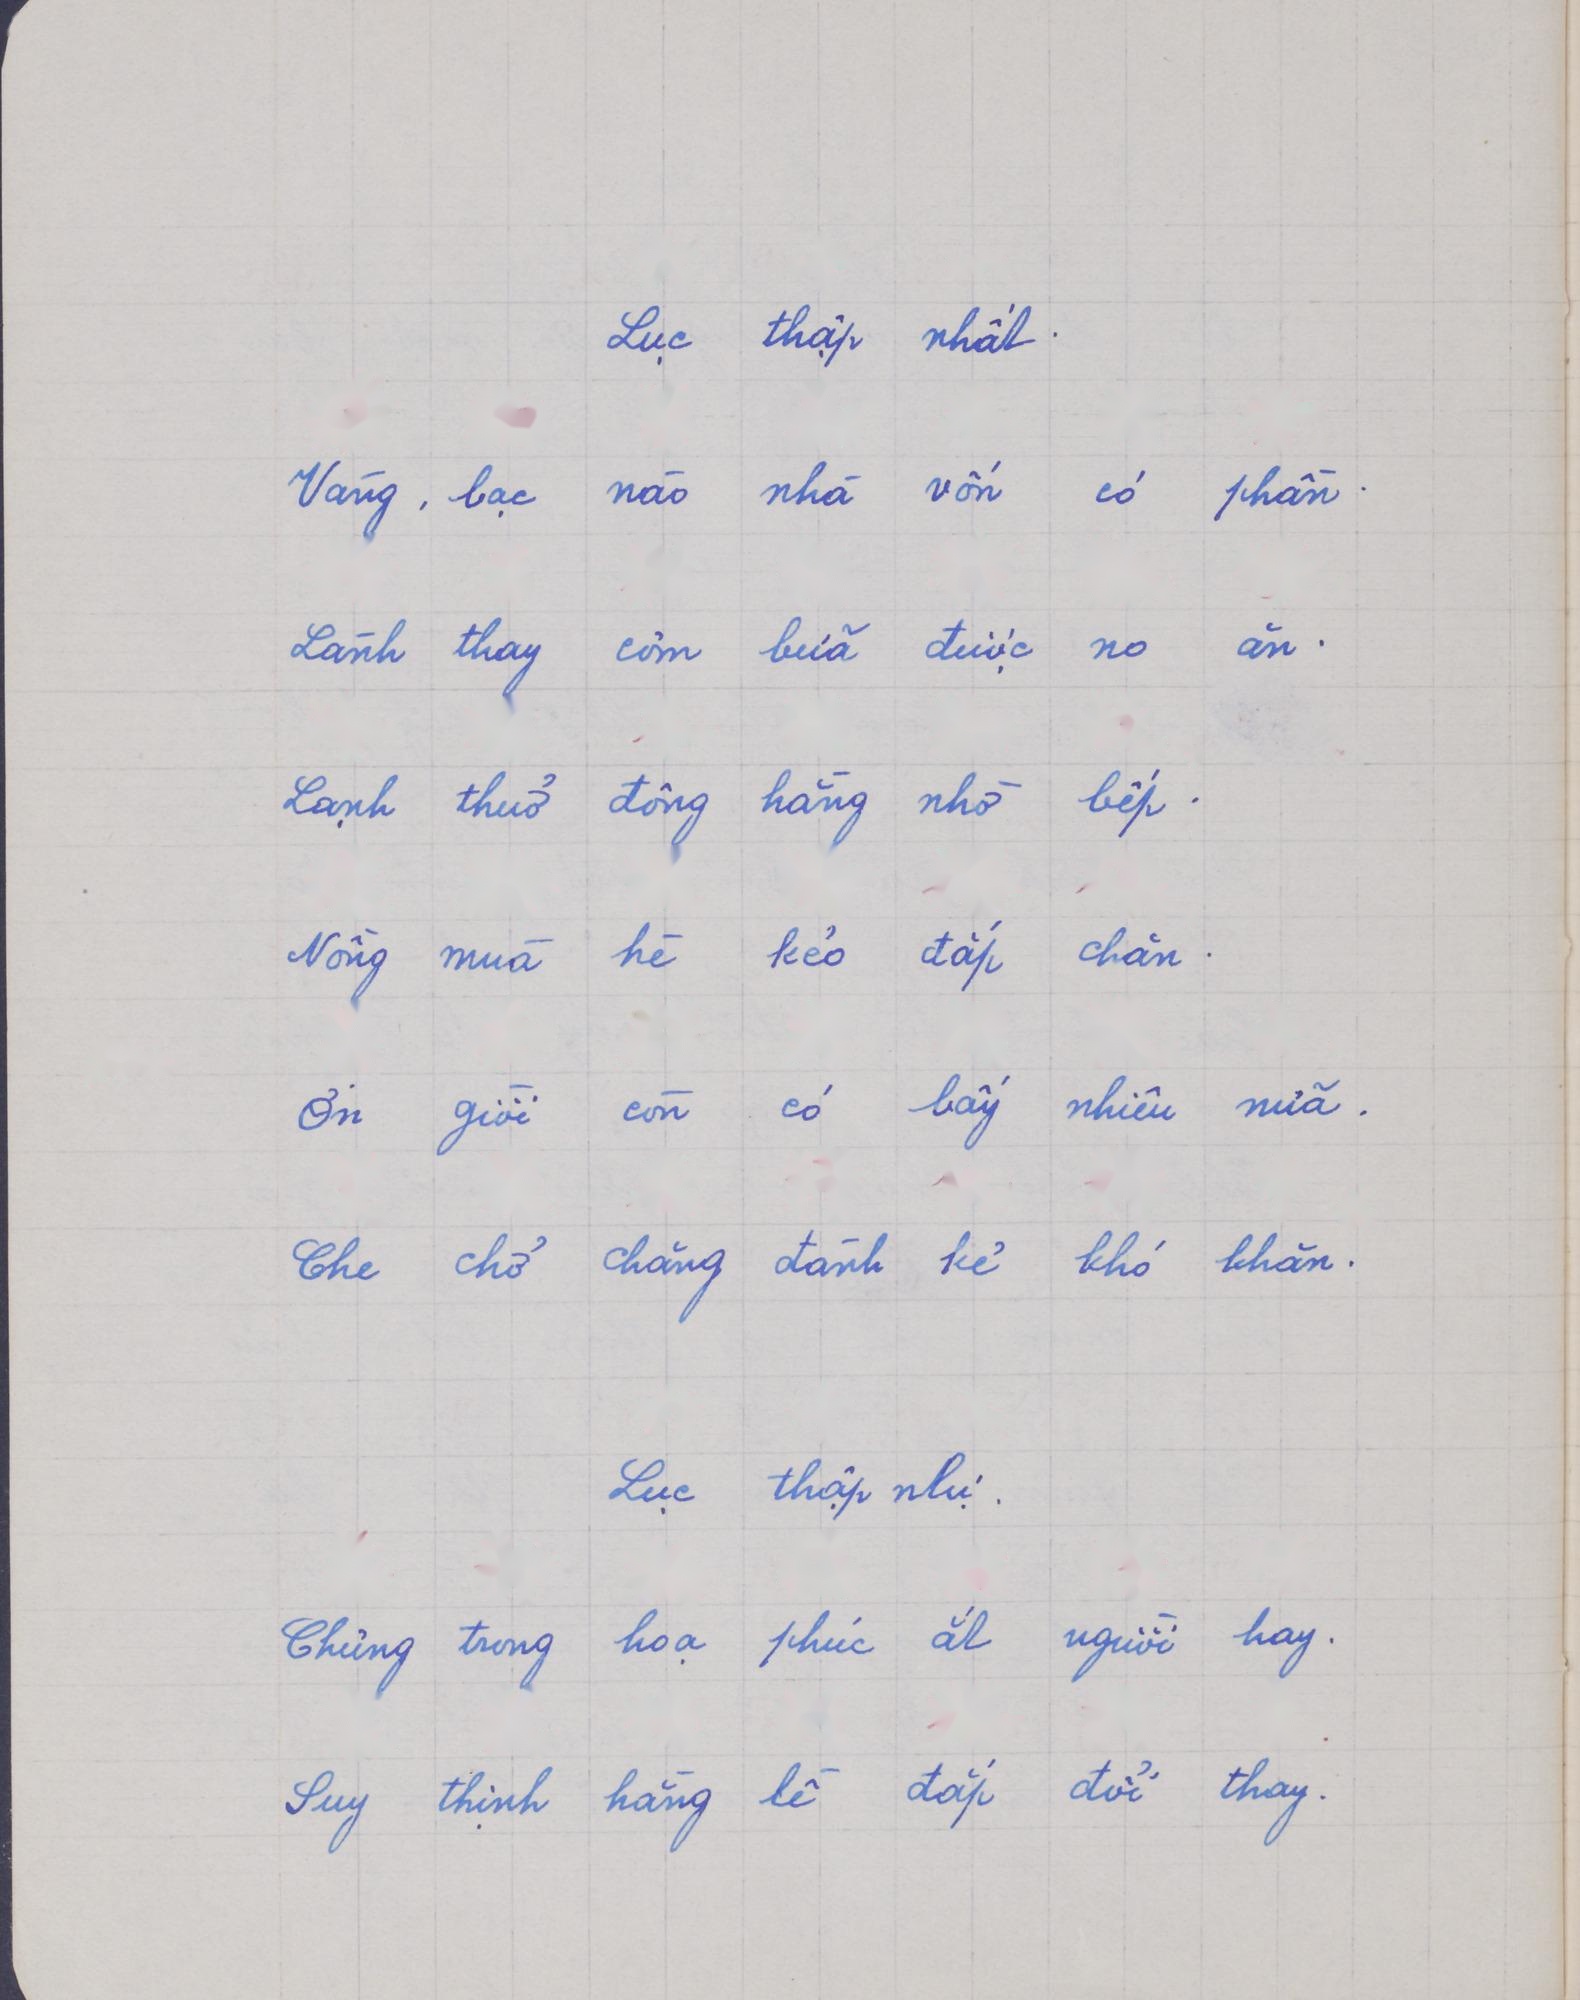 Lục thập nhất.
Vàng, bạc nào nhà vốn có phần.
Lành thay cơm bữa được no ăn.
Lạnh thuở đông hằng nhờ bếp.
Nồng mùa hè kẻo đắp chăn.
Ơn giời còn có bấy nhiêu nữa.
Che chở chăng đành kẻ khó khăn.
Lục thập nhị.
Chưng trong hoạ phúc ắt người hay.
Suy thịnh hằng lề đắp đổi thay.